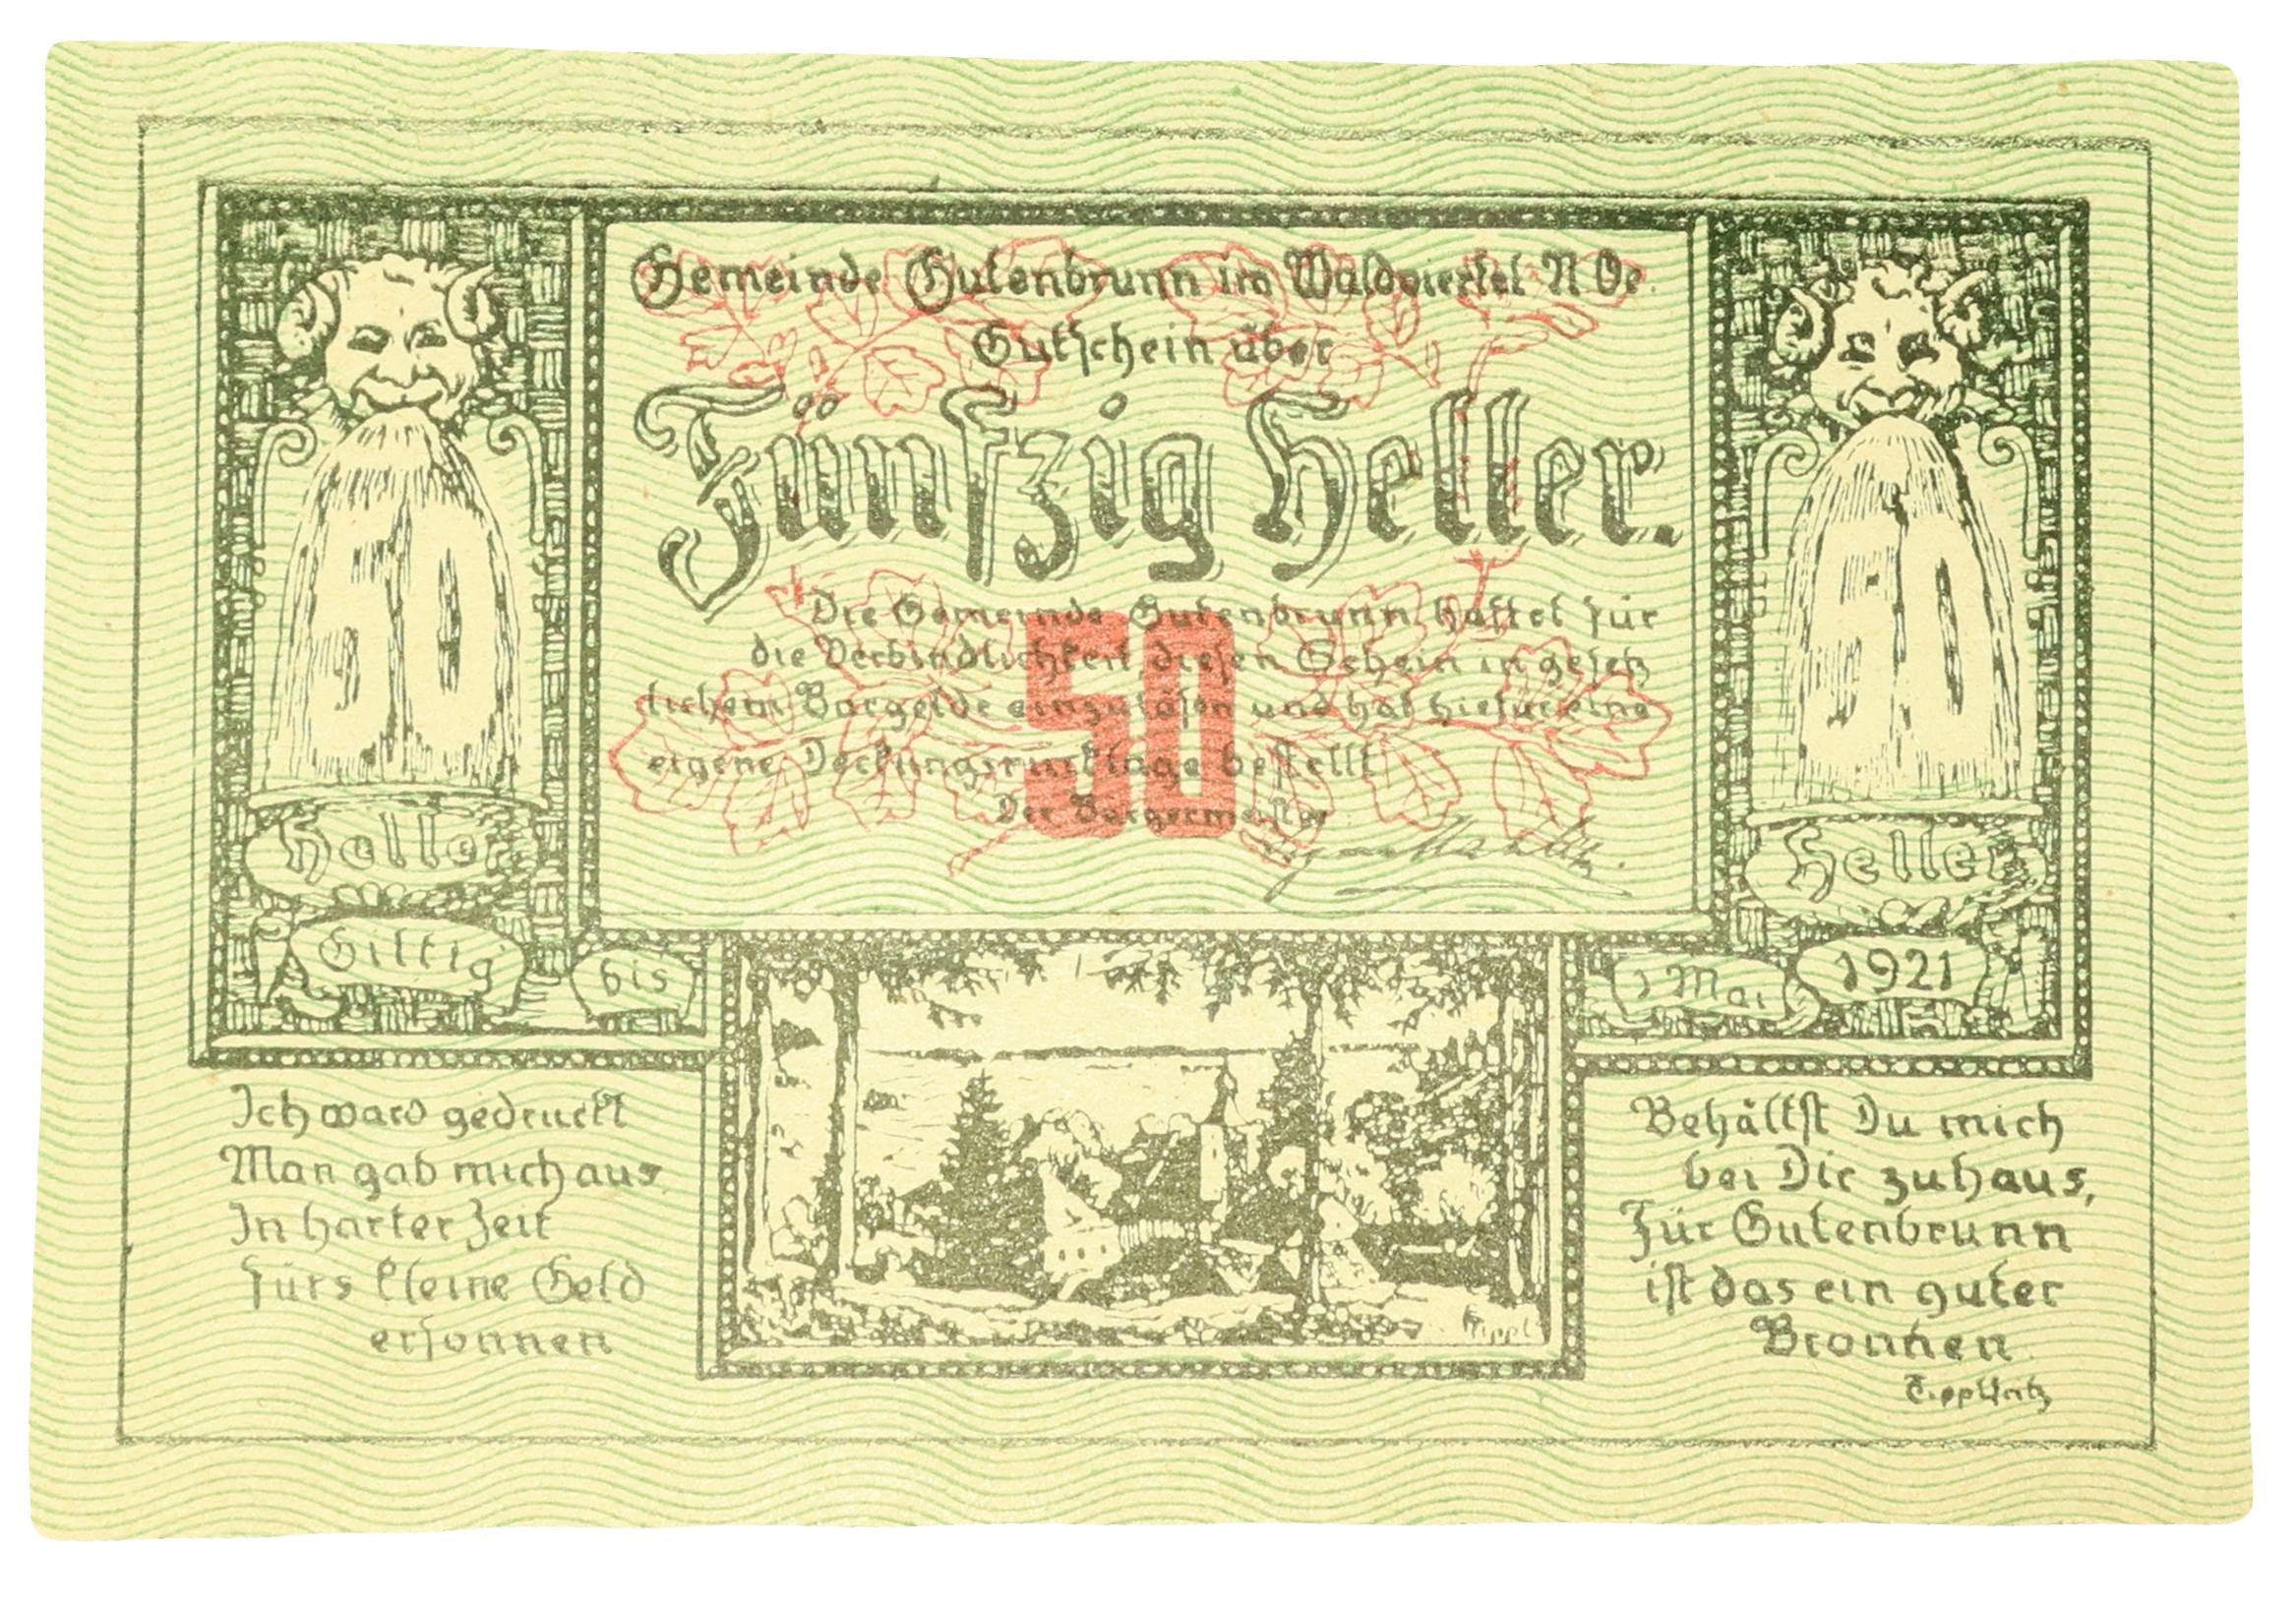 Gemeinde Gutenbrunn im Waldviertel N Oe.
Gutschein über
Fünfzig Heller.
Die Gemeinde Gutenbrunn haftet für
die Verbindlichkeit diesen Schein in gesetz
lichem Bargelde einzulösen und hat hiefür eine
eigene Deckungsrücklage bestellt
Der Bürgermeister
50
50
50
Heller
Heller
Giltig bis 1 Mai 1921
Ich ward gedruckt
Man gab mich aus
In harter Zeit
fürs kleine Geld
ersonnen
Behältst Du mich
bei Dir zuhaus,
Für Gutenbrunn
ist das ein guter
Bronnen
Tippl